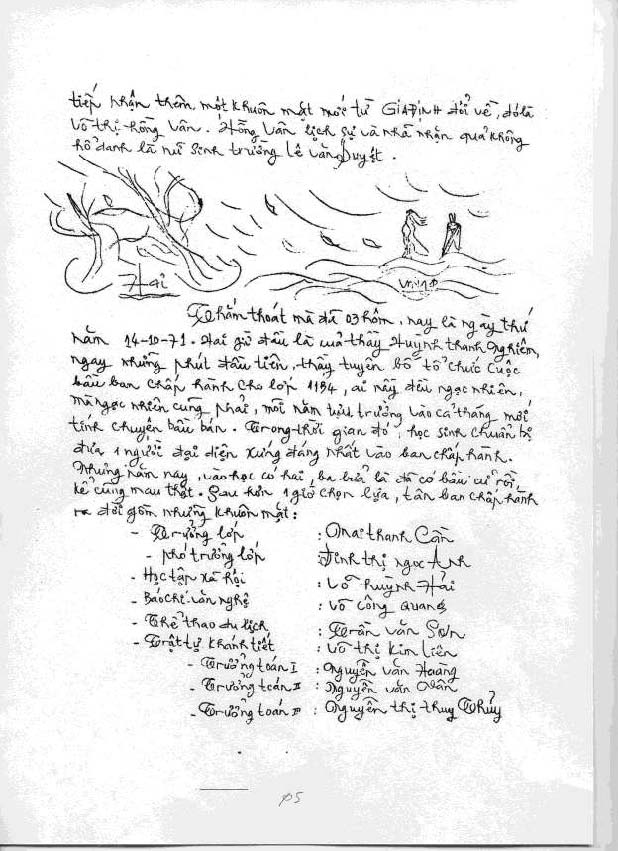 tiếp nhận thêm một khuôn mặt mới từ GIA ĐỊNH đổi về, đó là
Võ thị hồng Vân. Hồng Vân lịch sự và nhã nhặn quả không
hổ danh là nữ sinh trường Lê văn Duyệt.
Hai
Thấm thoát mà đã 03 hôm, nay là ngày thứ
năm 14-10-71. Hai giờ đầu là của thầy Huỳnh thanh Nghiêm,
ngay những phút đầu tiên, thầy tuyên bố tổ chức cuộc
bầu ban chấp hành cho lớp 11B4, ai nấy đều ngạc nhiên,
mà ngạc nhiên cũng phải, mỗi năm tựu trường vào cả tháng mới
tính chuyện bầu bán. Trong thời gian đó, học sinh chuẩn bị
đưa 1 người đại diện xứng đáng nhất vào ban chấp hành.
Nhưng năm nay, vào học có hai, ba bữa là đã có bầu cử rồi,
kể cũng mau thật. Sau hơn 1 giờ chọn lựa, tân ban chấp hành
ra đời gồm những khuôn mặt:
- Trưởng lớp : Mai thanh Cần
- phó trưởng lớp : Đinh thị ngọc Ánh
- Học tập xã hội : Võ huỳnh Hải
- Báo chí văn nghệ : Võ Công Quang
- Thể thao du lịch : Trần văn Sơn
- Trật tự khánh tiết : Võ thị Kim Liên
- Trưởng toán I : Nguyễn văn Hoàng
- Trưởng toán II : Nguyễn văn
- Trưởng toán : Nguyễn thị thuy Thủy
05